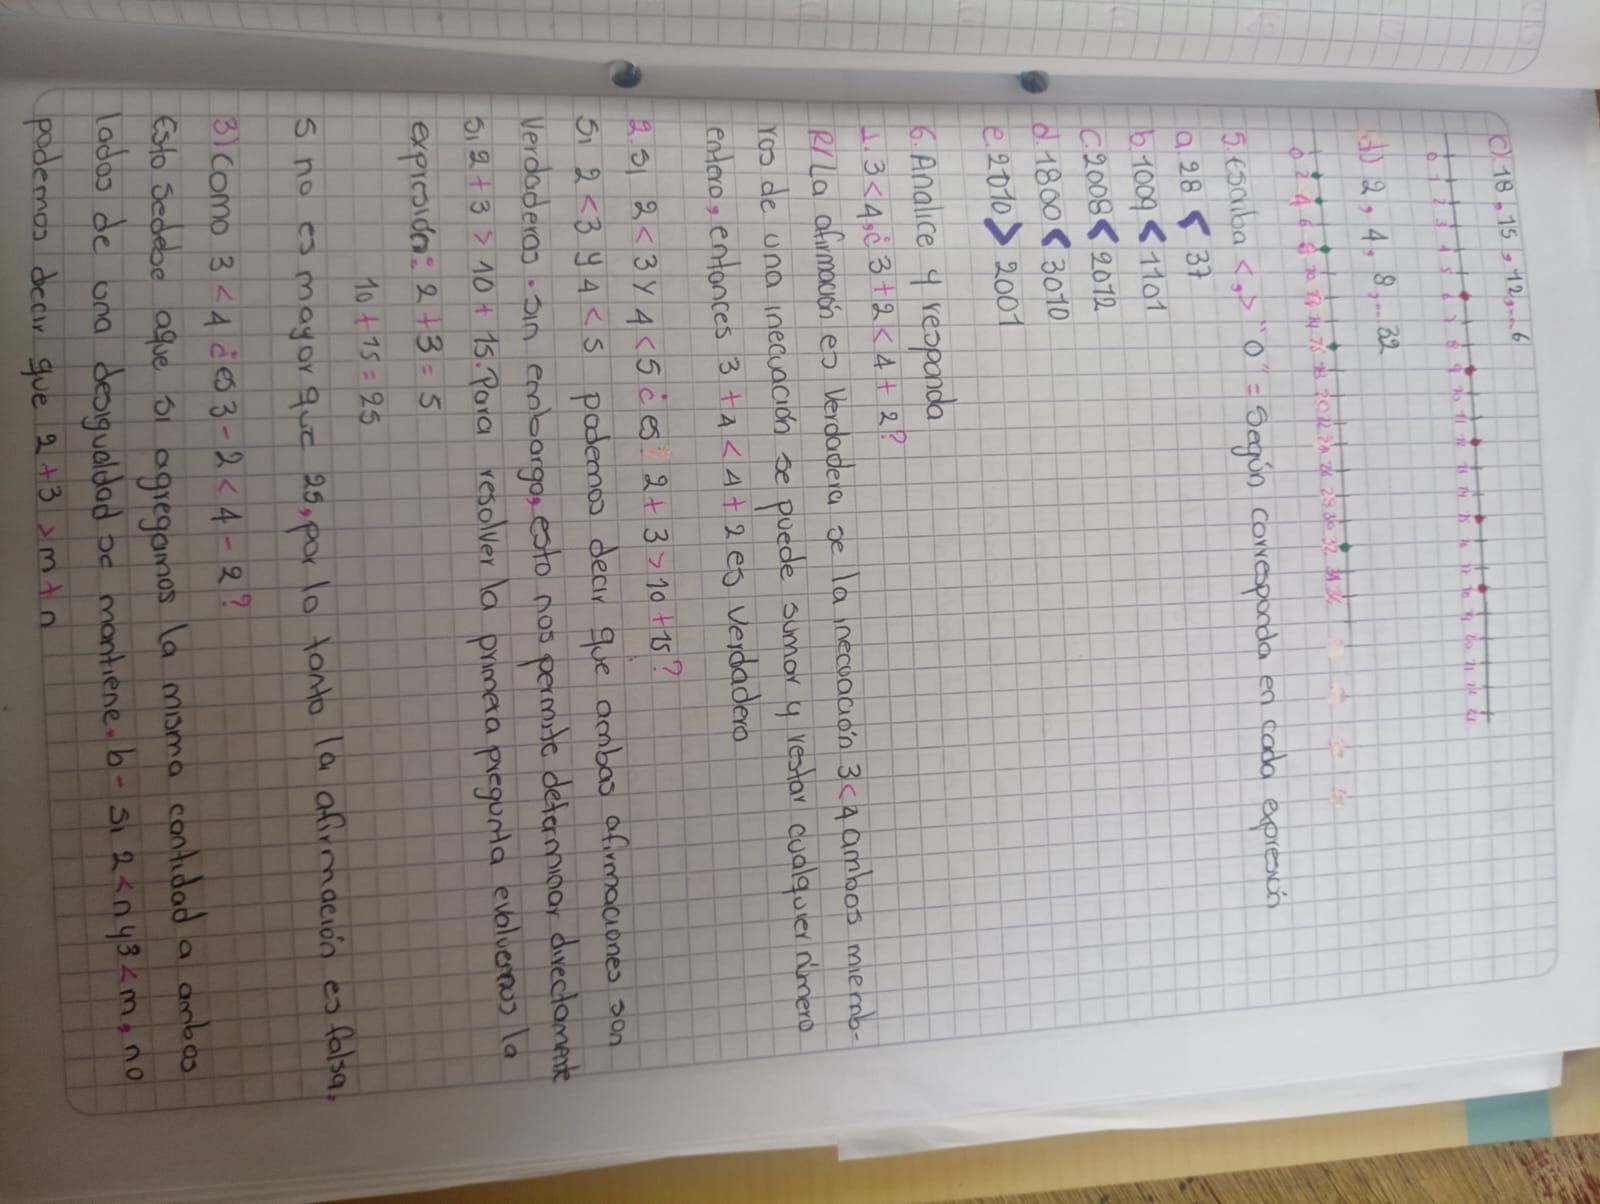 c) 18, 15, 12,... 6
0 1 2 3 4 5 6 7 8 9 10 11 12
d) 2, 4, 8,... 32
0 2 4 6 8 10 12 14
5. Escriba <, > "o" = Según corresponda en cada expresión
a 28 < 37
b 1009 < 1101
c. 2008 < 2012
d. 1800 < 3010
e. 2010 > 2001
6. Analice y responda
1. 3 < 4, ¿ 3 + 2 < 4 + 2?
R// La afirmación es verdadera se la inecuación 3 < 4 ambos miemb-
ros de una inecuación se puede sumar y restar cualquier número
entero, entonces 3 + 4 < 4 + 2 es verdadero
2. Si 2 < 3 y 4 < 5 ¿ es? 2 + 3 > 10 + 15?
Si 2 < 3 y 4 < 5 podemos decir que ambas afirmaciones son
Verdaderas. Sin embargo, esto nos permite determinar directamente
si 2 + 3 > 10 + 15. Para resolver la primera pregunta evaluemos la
expresión: 2 + 3 = 5
10 + 15 = 25
5 no es mayor que 25, por lo tanto la afirmación es falsa.
3) Como 3 < 4 ¿es 3 - 2 < 4 - 2?
Esto sedebe aque si agregamos la misma cantidad a ambos
lados de una desigualdad se mantiene. b - si 2 < n y 3 < m, no
podemos decir que 2 + 3 > m + n